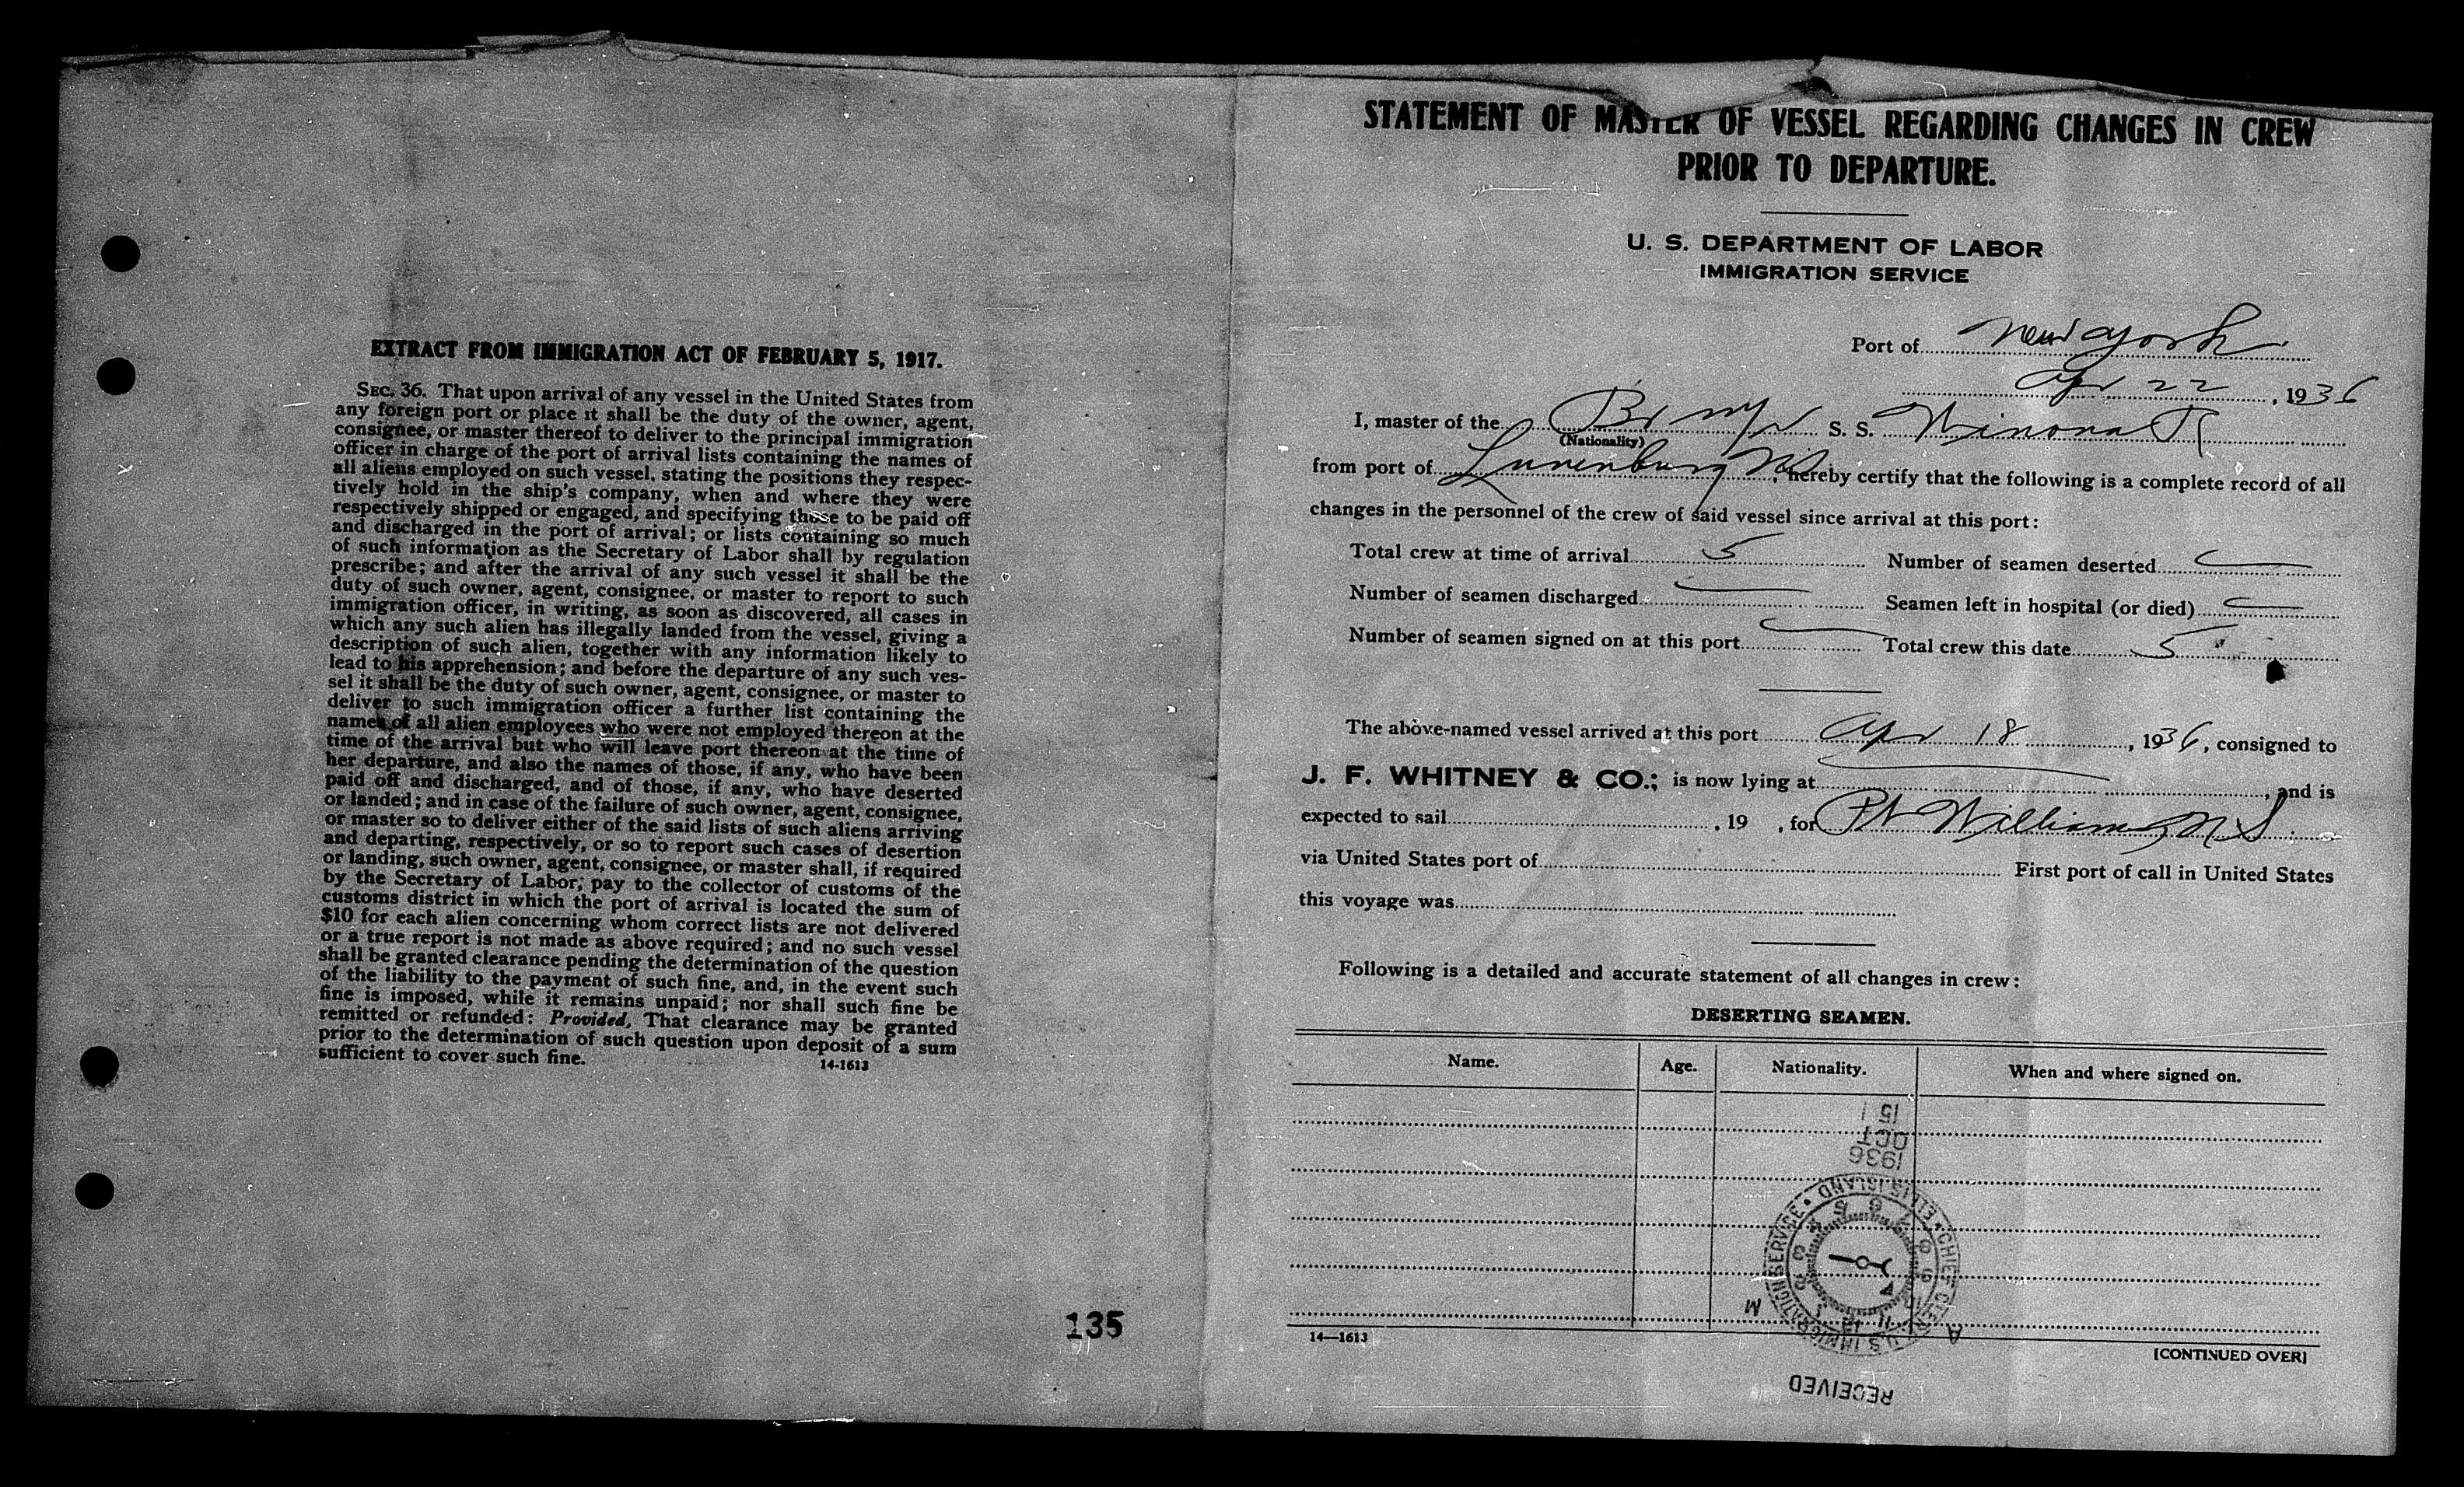 EXTRACT FROM IMMIGRATION ACT OF FEBRUARY 5, 1917.
SEC. 36. That upon arrival of any vessel in the United States from
any foreign port or place it shall be the duty of the owner, agent,
consignee, or master thereof to deliver to the principal immigration
officer in charge of the port of arrival lists containing the names of
all aliens employed on such vessel, stating the positions they respec-
tively hold in the ship's company, when and where they were
respectively shipped or engaged, and specifying those to be paid off
and discharged in the port of arrival; or lists containing so much
of such information as the Secretary of Labor shall by regulation
prescribe; and after the arrival of any such vessel it shall be the
duty of such owner, agent, consignee, or master to report to such
immigration officer, in writing, as soon as discovered, all cases in
which any such alien has illegally landed from the vessel, giving a
description of such alien, together with any information likely to
lead to his apprehension; and before the departure of any such ves-
sel it shall be the duty of such owner, agent, consignee, or master to
deliver to such immigration officer a further list containing the
names of all alien employees who were not employed thereon at the
time of the arrival but who will leave port thereon at the time of
her departure, and also the names of those, if any, who have been
paid off and discharged, and of those, if any, who have deserted
or landed; and in case of the failure of such owner, agent, consignee,
or master so to deliver either of the said lists of such aliens arriving
and departing, respectively, or so to report such cases of desertion
or landing, such owner, agent, consignee, or master shall, if required
by the Secretary of Labor, pay to the collector of customs of the
customs district in which the port of arrival is located the sum of
$10 for each alien concerning whom correct lists are not delivered
or a true report is not made as above required; and no such vessel
shall be granted clearance pending the determination of the question
of the liability to the payment of such fine, and, in the event such
fine is imposed, while it remains unpaid; nor shall such fine be
remitted or refunded: Provided, That clearance may be granted
prior to the determination of such question upon deposit of a sum
sufficient to cover such fine.
14-1613
135
STATEMENT OF MASTER OF VESSEL REGARDING CHANGES IN CREW
PRIOR TO DEPARTURE.
U. S. DEPARTMENT OF LABOR
IMMIGRATION SERVICE
Port of New York
Apr 22, 1936
I, master of the Br S. S. Winona R
(Nationality)
from port of Lunenburg NS, hereby certify that the following is a complete record of all
changes in the personnel of the crew of said vessel since arrival at this port:
Total crew at time of arrival 5 Number of seamen deserted
Number of seamen discharged Seamen left in hospital (or died)
Number of seamen signed on at this port Total crew this date 5
The above-named vessel arrived at this port Apr 18, 1936, consigned to
J. F. WHITNEY & CO.; is now lying at , and is
expected to sail , 19 , for Pt Williams N S
via United States port of First port of call in United States
this voyage was
Following is a detailed and accurate statement of all changes in crew:
DESERTING SEAMEN.
Name. Age. Nationality. When and where signed on.
15
OCT
1936
U.S. IMMIGRATION SERVICE • ELLIS ISLAND • CHIEF CLERK
1 2 3 4 5 6 7 8 9 10 11 12
A M
RECEIVED
14—1613
[CONTINUED OVER]